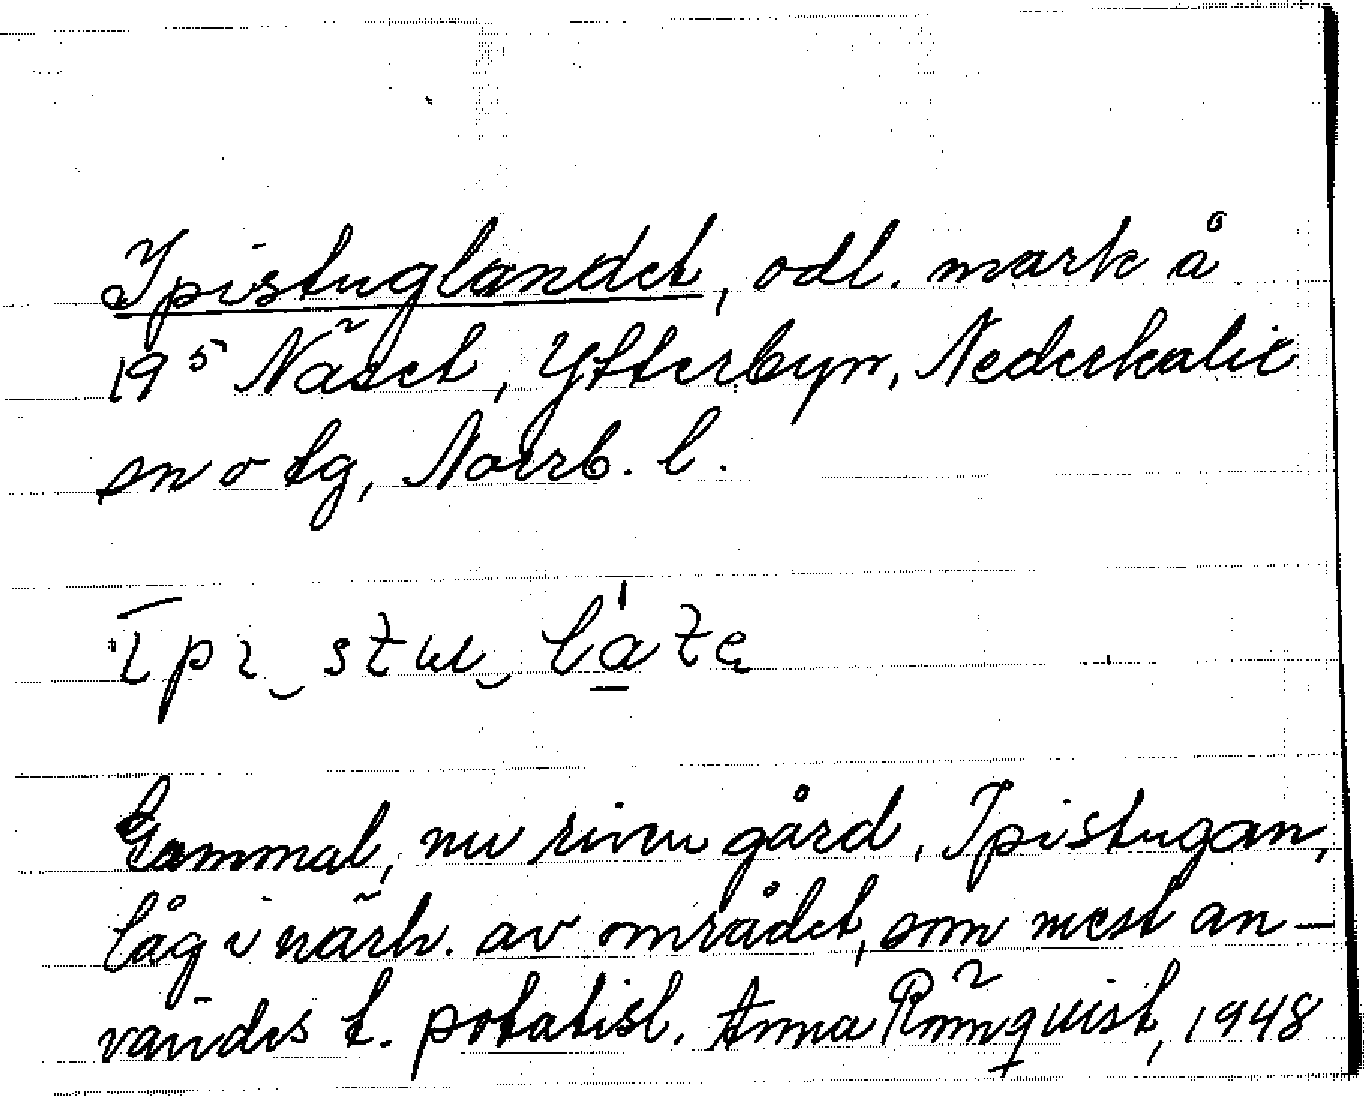 Ipistuglandet, odl. mark å
19⁵ Näset, Ytterbyn, Nederkalix
sn o tg, Norrb. l.
īpɩ‿stɯ‿la̱te
Gammal, nu riven gård, Ipistugan,
låg i närh. av området, som mest an-
vändes t. potatisl. Anna Rönnquist, 1948